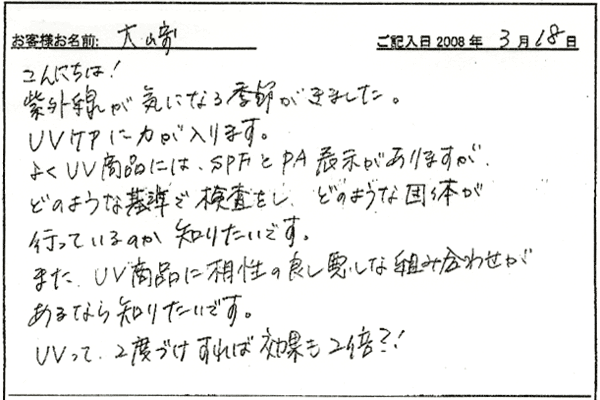 お客様お名前: 大﨑 ご記入日 2008 年 3 月 18 日
こんにちは!
紫外線が気になる季節がきました。
UVケアに力が入ります。
よくUV商品には、SPFとPA表示がありますが、
どのような基準で検査をし、どのような団体が
行っているのか知りたいです。
また、UV商品に相性の良し悪しな組み合わせが
あるなら知りたいです。
UVって、2度づけすれば効果も2倍?!